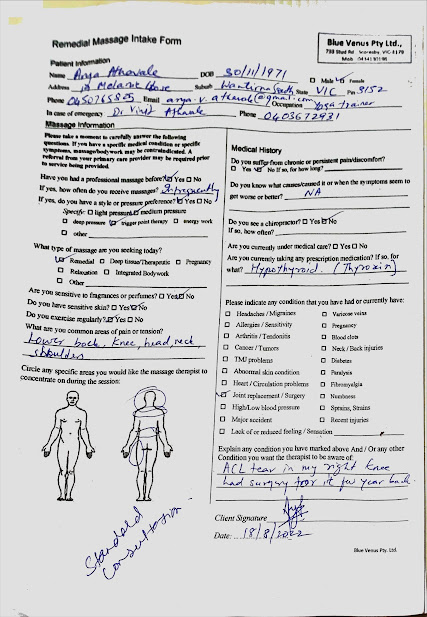 Remedial Massage Intake Form
Blue Venus Pty Ltd.,
Patient Information
Name Arya Athavale DOB 30/11/1971 ☐ Male ☑ Female
Address Melanie Close Suburb Wantirna South State VIC Pin 3152
Phone Email Occupation Yoga trainer
In case of emergency Dr Athavale Phone 0403672931
Massage Information
Please take a moment to carefully answer the following
questions. If you have a specific medical condition or specific
symptoms, massage/bodywork may be contraindicated. A
referral from your primary care provider may be required prior
to service being provided.
Have you had a professional massage before? ☑ Yes ☐ No
If yes, how often do you receive massages? Infrequently
If yes, do you have a style or pressure preference? ☑ Yes ☐ No
Specific: ☐ light pressure ☑ medium pressure
☐ deep pressure ☑ trigger point therapy ☐ energy work
☐ other
What type of massage are you seeking today?
☑ Remedial ☐ Deep tissue/Therapeutic ☐ Pregnancy
☐ Relaxation ☐ Integrated Bodywork
☐ Other
Are you sensitive to fragrances or perfumes? ☐ Yes ☑ No
Do you have sensitive skin? ☐ Yes ☑ No
Do you exercise regularly? ☑ Yes ☐ No
What are you common areas of pain or tension?
Lower back, knee, head, neck,
shoulder
Circle any specific areas you would like the massage therapist to
concentrate on during the session:
Standard
Consultation
Medical History
Do you suffer from chronic or persistent pain/discomfort?
☐ Yes ☑ No If so, for how long?
Do you know what causes/caused it or when the symptoms seem to
get worse or better? NA
Do you see a chiropractor? ☐ Yes ☑ No
If so, how often?
Are you currently under medical care? ☐ Yes ☐ No
Are you currently taking any prescription medication? If so, for
what? Hypothyroid. (Thyroxin)
Please indicate any condition that you have had or currently have:
☐ Headaches / Migraines ☐ Varicose veins
☐ Allergies / Sensitivity ☐ Pregnancy
☐ Arthritis / Tendonitis ☐ Blood clots
☐ Cancer / Tumors ☐ Neck / Back injuries
☐ TMJ problems ☐ Diabetes
☐ Abnormal skin condition ☐ Paralysis
☐ Heart / Circulation problems ☐ Fibromyalgia
☑ Joint replacement / Surgery ☐ Numbness
☐ High/Low blood pressure ☐ Sprains, Strains
☐ Major accident ☐ Recent injuries
☐ Lack of or reduced feeling / Sensation
Explain any condition you have marked above And / Or any other
Condition you want the therapist to be aware of:
ACL tear in my right knee
had surgery for it few year back.
Client Signature
Date: 18/8/2022
Blue Venus Pty. Ltd.